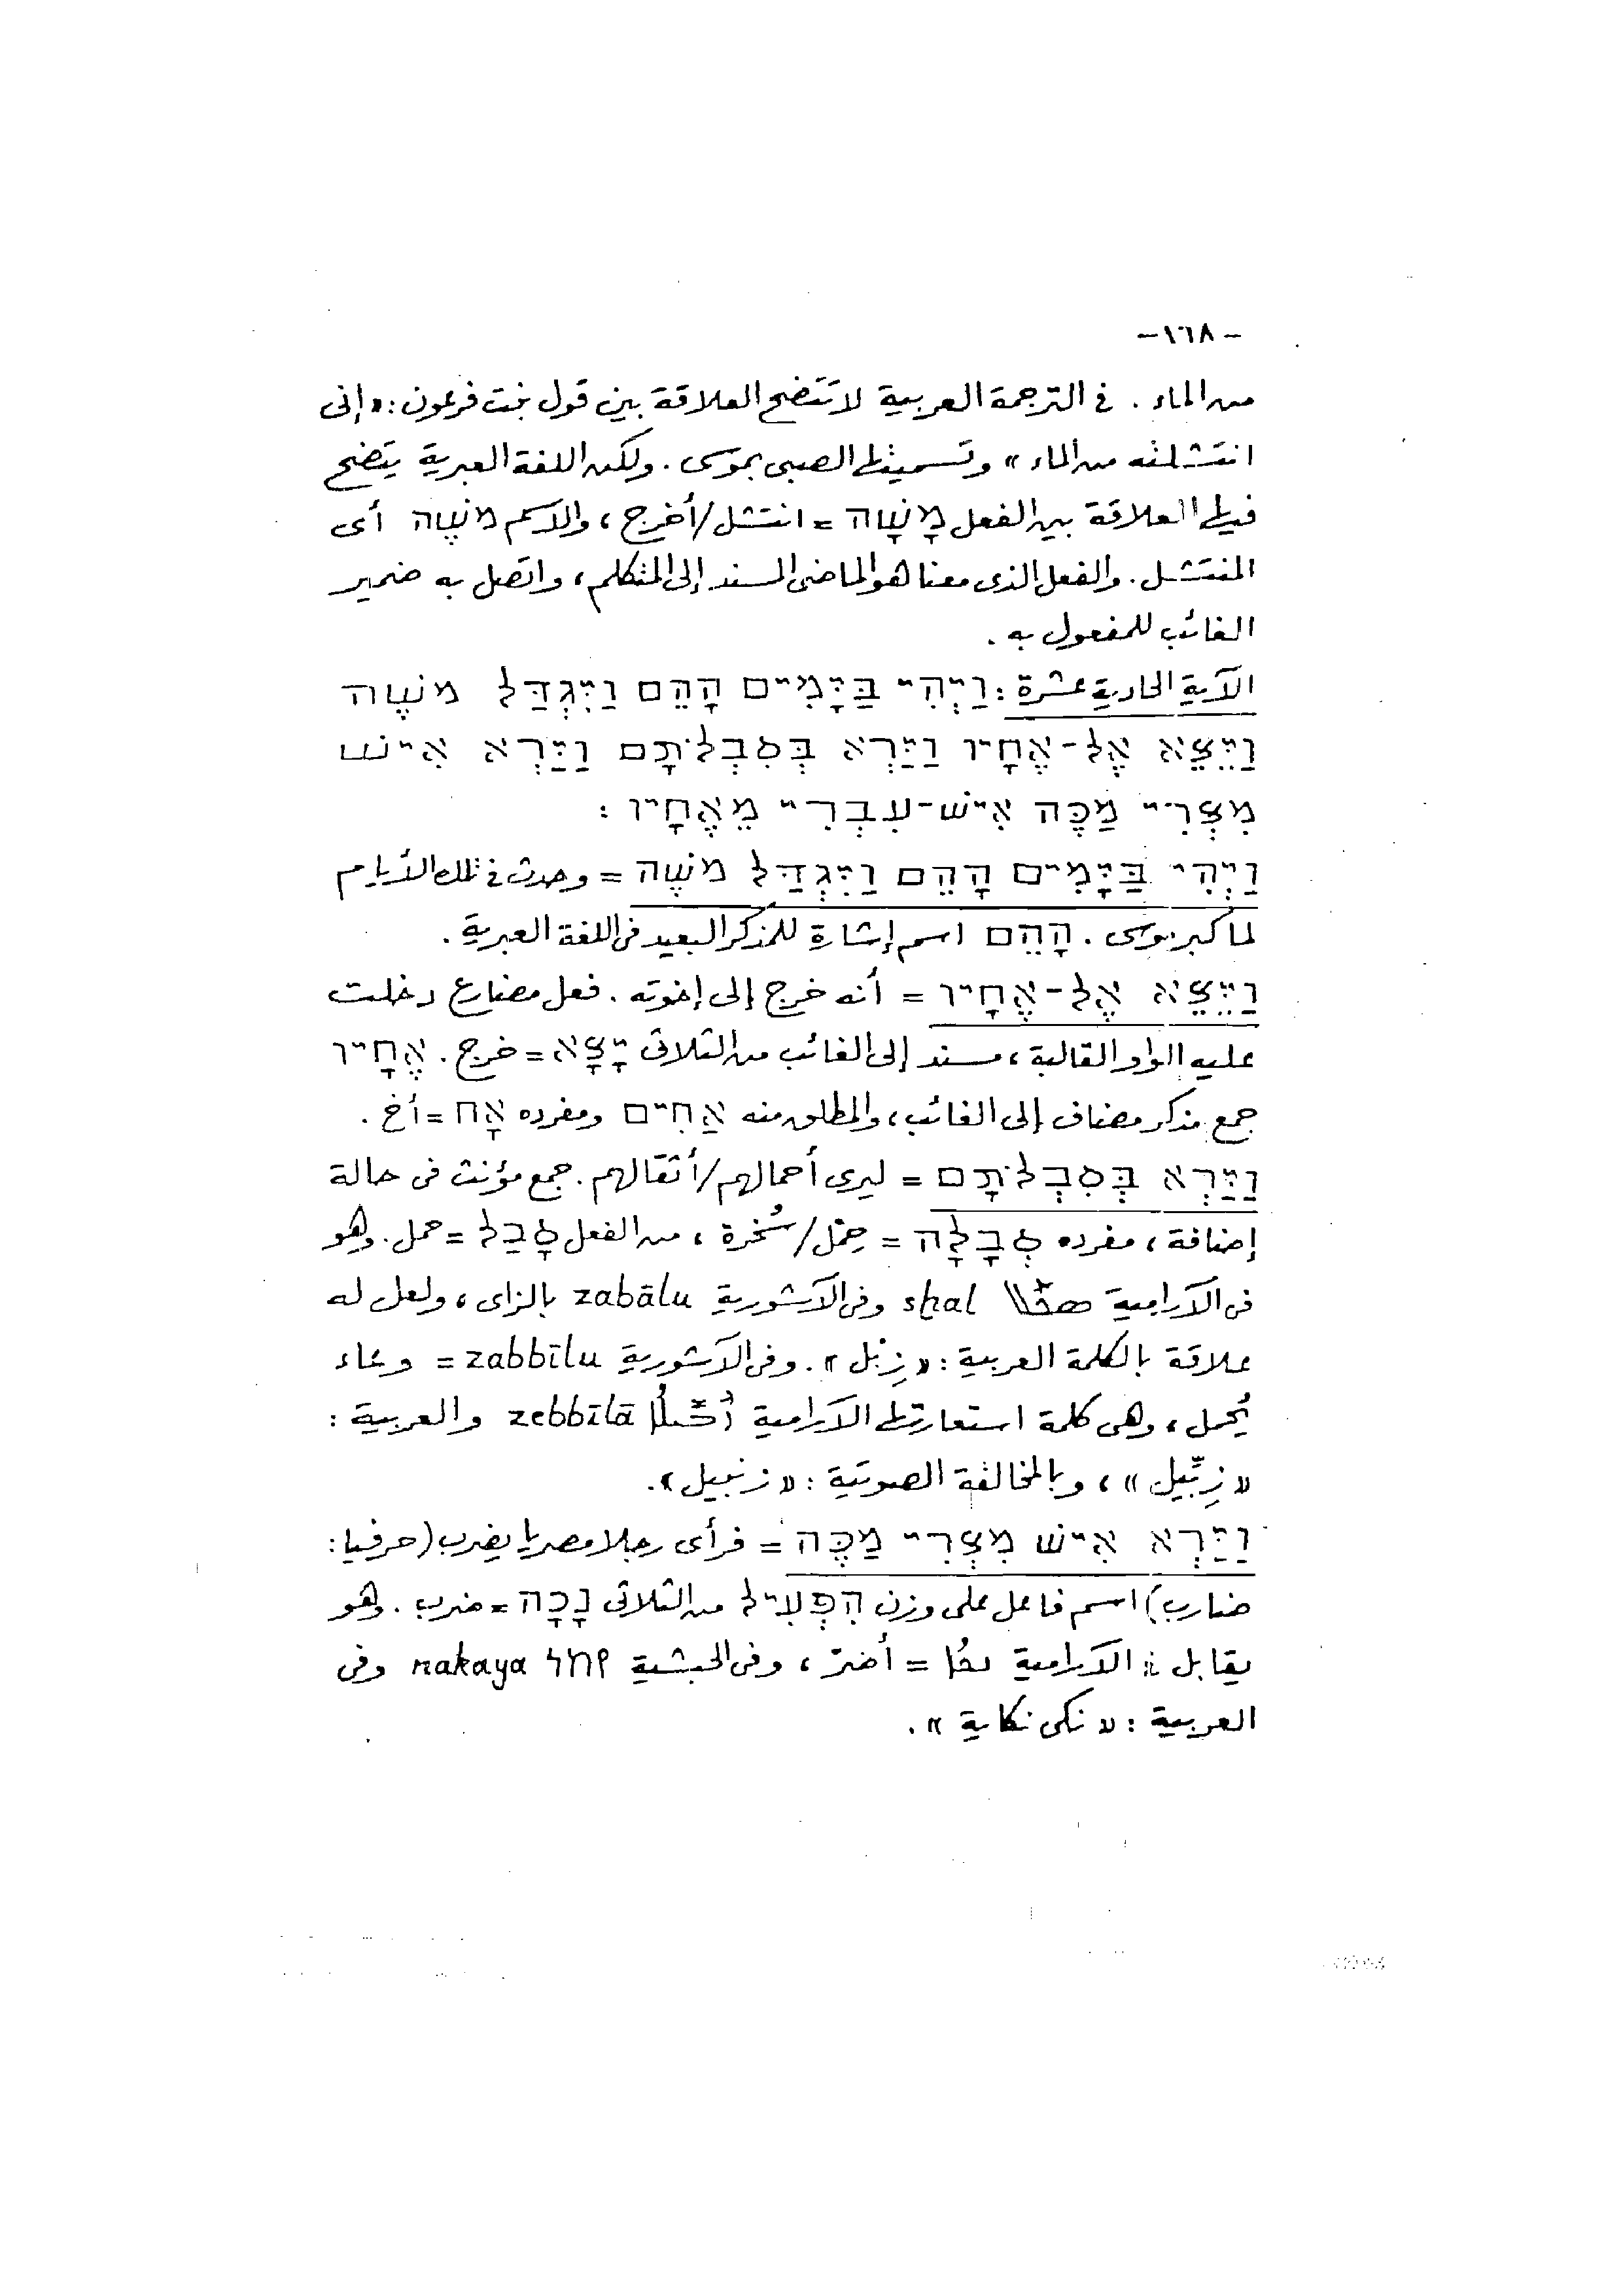 – ١٦٨ –
من الماء . في الترجمة العربية لا تتضح العلاقة بين قول بنت فرعون : « إنى
انتشلته من الماء » وتسميتها الصبى بموسى . ولكن اللغة العبرية يتضح
فيها العلاقة بين الفعل מָשָׁה = انتشل/أخرج ، والاسم מֹשֶׁה أى
المنتشل . والفعل الذى معنا هو الماضى المسند إلى المتكلم ، واتصل به ضمير
الغائب للمفعول به .
الآية الحادية عشرة : וַיְהִי בַּיָּמִים הָהֵם וַיִּגְדַּל מֹשֶׁה
וַיֵּצֵא אֶל-אֶחָיו וַיַּרְא בְּסִבְלֹתָם וַיַּרְא אִישׁ
מִצְרִי מַכֶּה אִישׁ-עִבְרִי מֵאֶחָיו :
וַיְהִי בַּיָּמִים הָהֵם וַיִּגְדַּל מֹשֶׁה = وحدث فى تلك الأيام
لما كبر موسى . הָהֵם اسم إشارة للمذكر البعيد فى اللغة العبرية .
וַיֵּצֵא אֶל-אֶחָיו = أنه خرج إلى إخوته . فعل مضارع دخلت
عليه الواو القالبة ، مسند إلى الغائب من الثلاثى יָצָא = خرج . אֶחָיו
جمع مذكر مضاف إلى الغائب ، والمطلق منه אַחִים ومفرده אָח = أخ .
וַיַּרְא בְּסִבְלֹתָם = ليرى أحمالهم/أثقالهم . جمع مؤنث فى حالة
إضافة ، مفرده סְבָלָה = حِمْل/سُخرة ، من الفعل סָבַל = حمل . وهو
فى الآرامية ܣܒܠ sbal وفى الآشورية zabālu بالزاى ، ولعل له
علاقة بالكلمة العربية : « زِبْل » . وفى الآشورية zabbīlu = وعاء
يُحمل ، وهى كلمة استعارتها الآرامية ܙܒܝܠܐ zebbīlā والعربية :
« زِبِّيل » ، وبالمخالفة الصوتية : « زنبيل » .
וַיַּרְא אִישׁ מִצְרִי מַכֶּה = فرأى رجلا مصريا يضرب (حرفيا :
ضارب) اسم فاعل على وزن הִפְעִיל من الثلاثى נָכָה = ضرب . وهو
يقابل فى الآرامية ܢܟܐ = أضرّ ، وفى الحبشية ነከየ nakaya وفى
العربية : « نكى نكاية » .